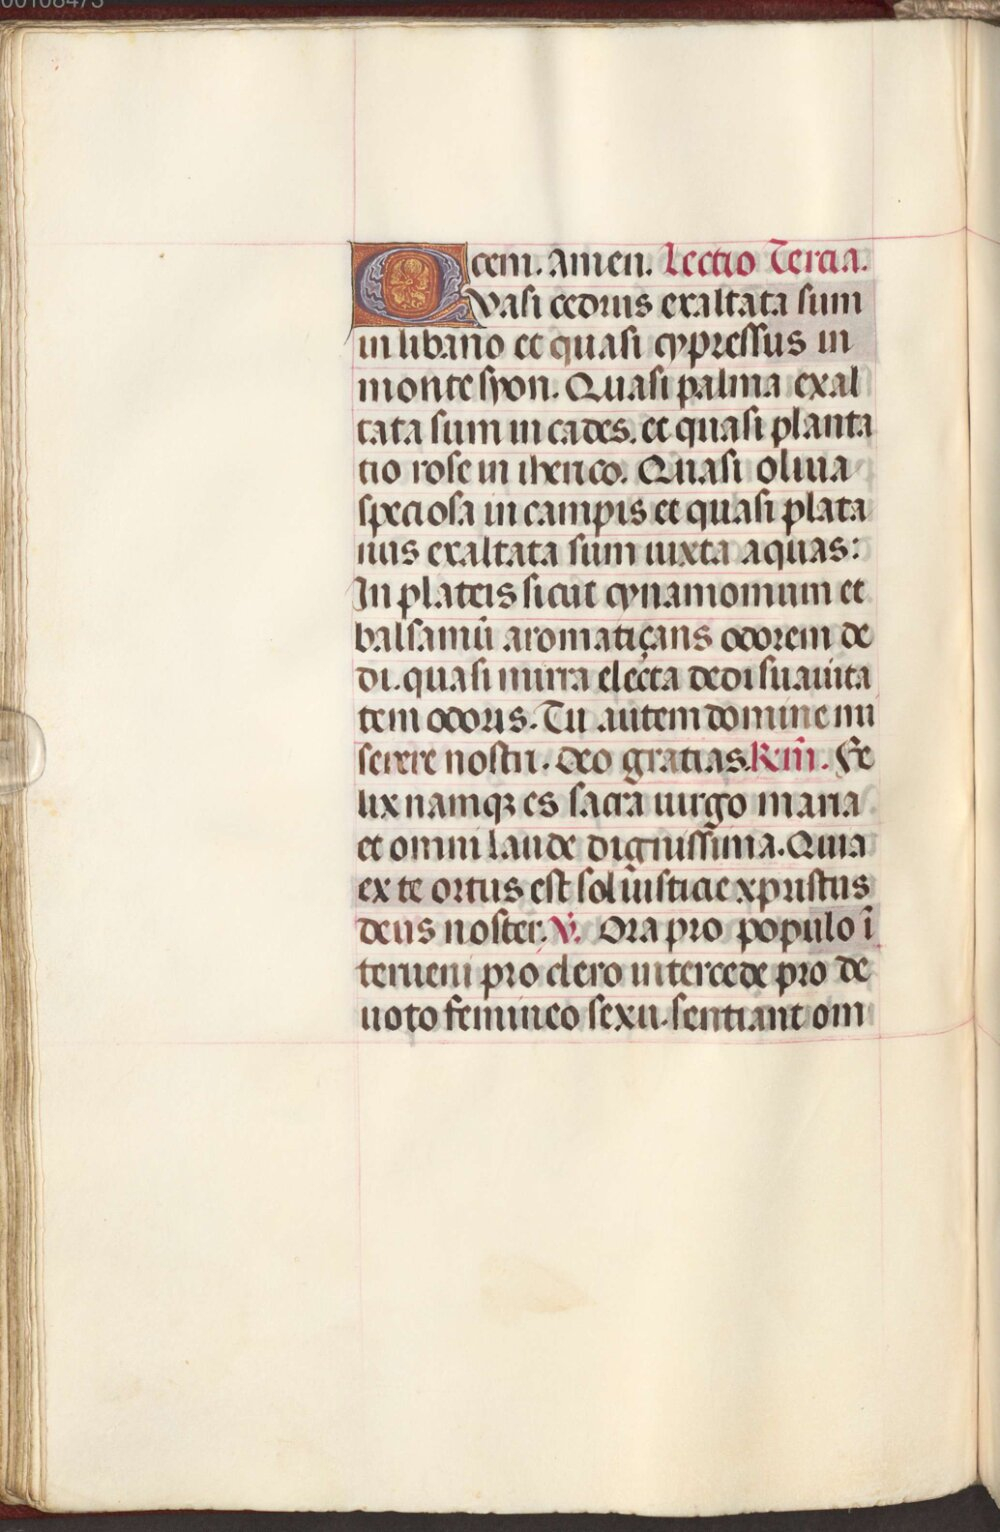 00108473
cem. Amen. Lectio Tercia.
Qvasi cedrus exaltata sum
in libano et quasi cypressus in
monte syon. Quasi palma exal
tata sum in cades. et quasi planta
tio rose in iherico. Quasi oliua
speciosa in campis et quasi plata
nus exaltata sum iuxta aquas:
In plateis sicut cynamomum et
balsamū aromatiçans odorem de
di. quasi mirra electa dedi suauita
tem odoris. Tu autem domine mi
serere nostri. Deo gratias. R.iii. Fe
lix namqꝫ es sacra uirgo maria
et omni laude dignissima. Quia
ex te ortus est sol iusticie xpristus
deus noster. V. Ora pro populo ī
terueni pro clero intercede pro de
uoto femineo sexu. sentiant om